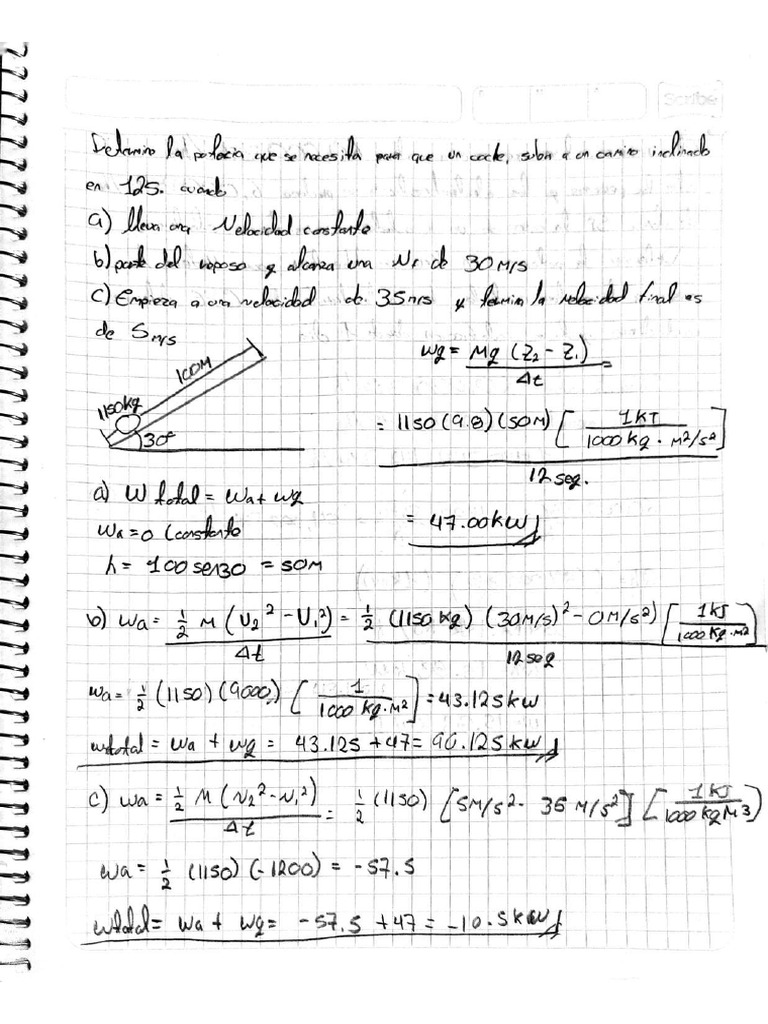 Scribe
Determino la potencia que se necesita para que un coche, suba a un camino inclinado
en 12s. cuando
a) lleva una Velocidad constante
b) parte del reposo y alcanza una Vf de 30 M/s
c) Empieza a una velocidad de 35 m/s y la velocidad final es
de 5 m/s
wg = Mg (Z2 - Z1) / Δt =
100M
1150kg
30°
= 1150 (9.8) (50M) [ 1KJ / 1000 kg · M²/s² ] / 12 seg.
= 47.00 KW
a) W total = wa + wg
wa = 0 (constante
h = 100 sen30 = 50M
b) wa = 1/2 M (V2² - V1²) / Δt = 1/2 (1150 kg) (30M/s)² - 0M/s²) [ 1KJ / 1000 kg·M² ] / 12 seg
wa = 1/2 (1150) (9000) [ 1 / 1000 kg·M² ] = 43.125 KW
wtotal = wa + wg = 43.125 + 47 = 90.125 KW
c) wa = 1/2 M (V2² - V1²) / Δt = 1/2 (1150) [5M/s² - 35 M/s²] [ 1KJ / 1000 kg M3 )
wa = 1/2 (1150) (-1200) = -57.5
wtotal = wa + wg = -57.5 + 47 = -10.5 KW